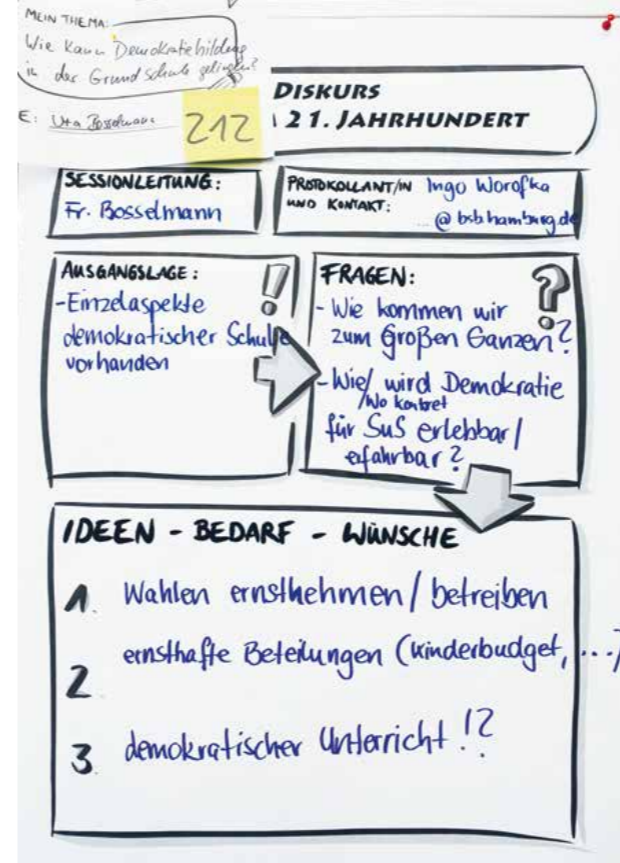 MEIN THEMA:
Wie kann Demokratiebildung
in der Grundschule gelingen?
E: Uta Bosselmann
212
DISKURS
21. JAHRHUNDERT
SESSIONLEITUNG:
Fr. Bosselmann
PROTOKOLLANT/IN Ingo Worofka
UND KONTAKT:
... @bsb.hamburg.de
AUSGANGSLAGE:
!
-Einzelaspekte
demokratischer Schule
vorhanden
FRAGEN:
?
- Wie kommen wir
zum Großen Ganzen?
- Wie/ wird Demokratie
/Wo konkret
für SuS erlebbar/
erfahrbar?
IDEEN - BEDARF - WÜNSCHE
1. Wahlen ernstnehmen/betreiben
2 ernsthafte Beteilungen (Kinderbudget, ...)
3. demokratischer Unterricht!?